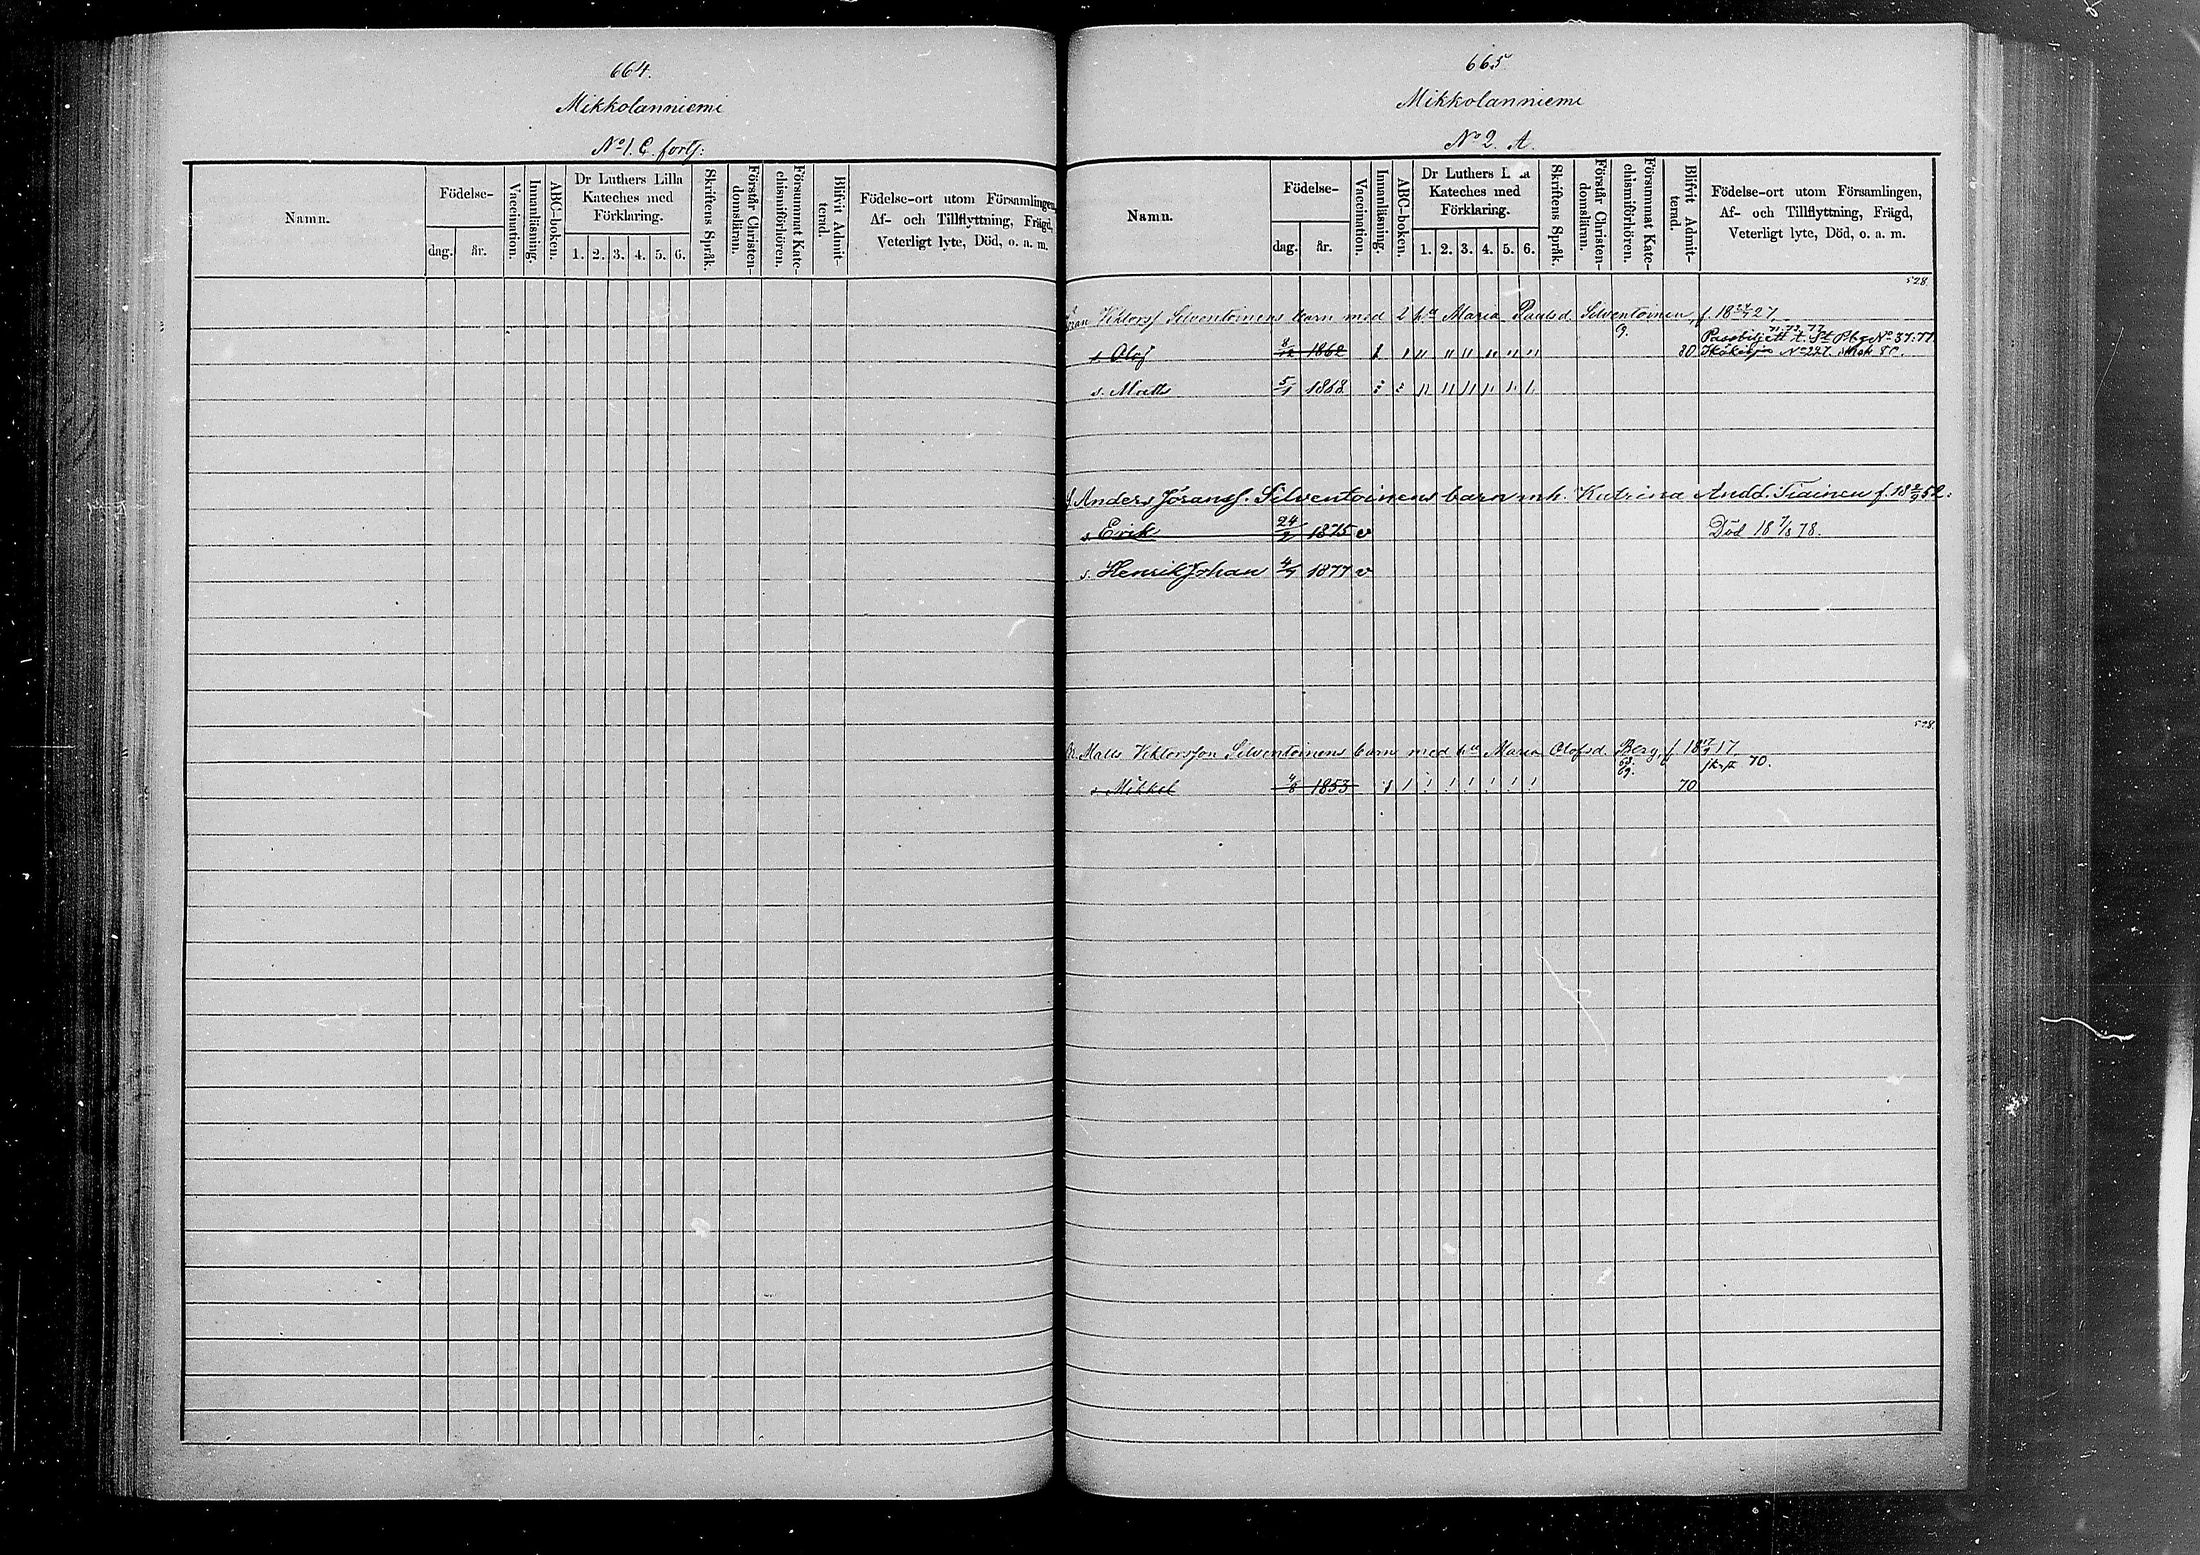 664.
Mikkolanniemi
No 1. C. forts:
Namn.
Födelse-
dag.
år.
Vaccination.
Innanläsning.
ABC-boken.
Dr Luthers Lilla
Kateches med
Förklaring.
1. 2. 3. 4. 5. 6.
Skriftens Språk.
Förstår Christen-
domsläran.
Försummat Kate-
chismiförhören.
Blifvit Admit-
terad.
Födelse-ort utom Församlingen,
Af- och Tillflyttning, Frägd,
Veterligt lyte, Död, o. a. m.
665
Mikkolanniemi
No 2. A.
Namn.
Födelse-
dag.
år.
Vaccination.
Innanläsning.
ABC-boken.
Dr Luthers L a
Kateches med
Förklaring.
1. 2. 3. 4. 5. 6.
Skriftens Språk.
Förstår Christen-
domsläran.
Försummat Kate-
chismiförhören.
Blifvit Admit-
terad.
Födelse-ort utom Församlingen,
Af- och Tillflyttning, Frägd,
Veterligt lyte, Död, o. a. m.
528.
Viktorsf Silventoinens barn med 2 hu Maria Paulsd. Silventoinen, f. 27.
s. Olof 8/12 1862 80 Passbiljett t. St Pbg No 37:77
s. Matts 5/1 1868
Anders Göransf. Silventoinens barn m h. Katrina Andd. Tiainen f. 18 2/9 52:
s. Erik 24/2 1875 v Död 18 7/8 78.
s. Henrik Johan 4/9 1877 v
528.
Matts Viktorsson Silventoinens barn med hu Maria Olofsd. Berg, f 17
68.
69.
70.
s. Mikkel 4/8 1853 70